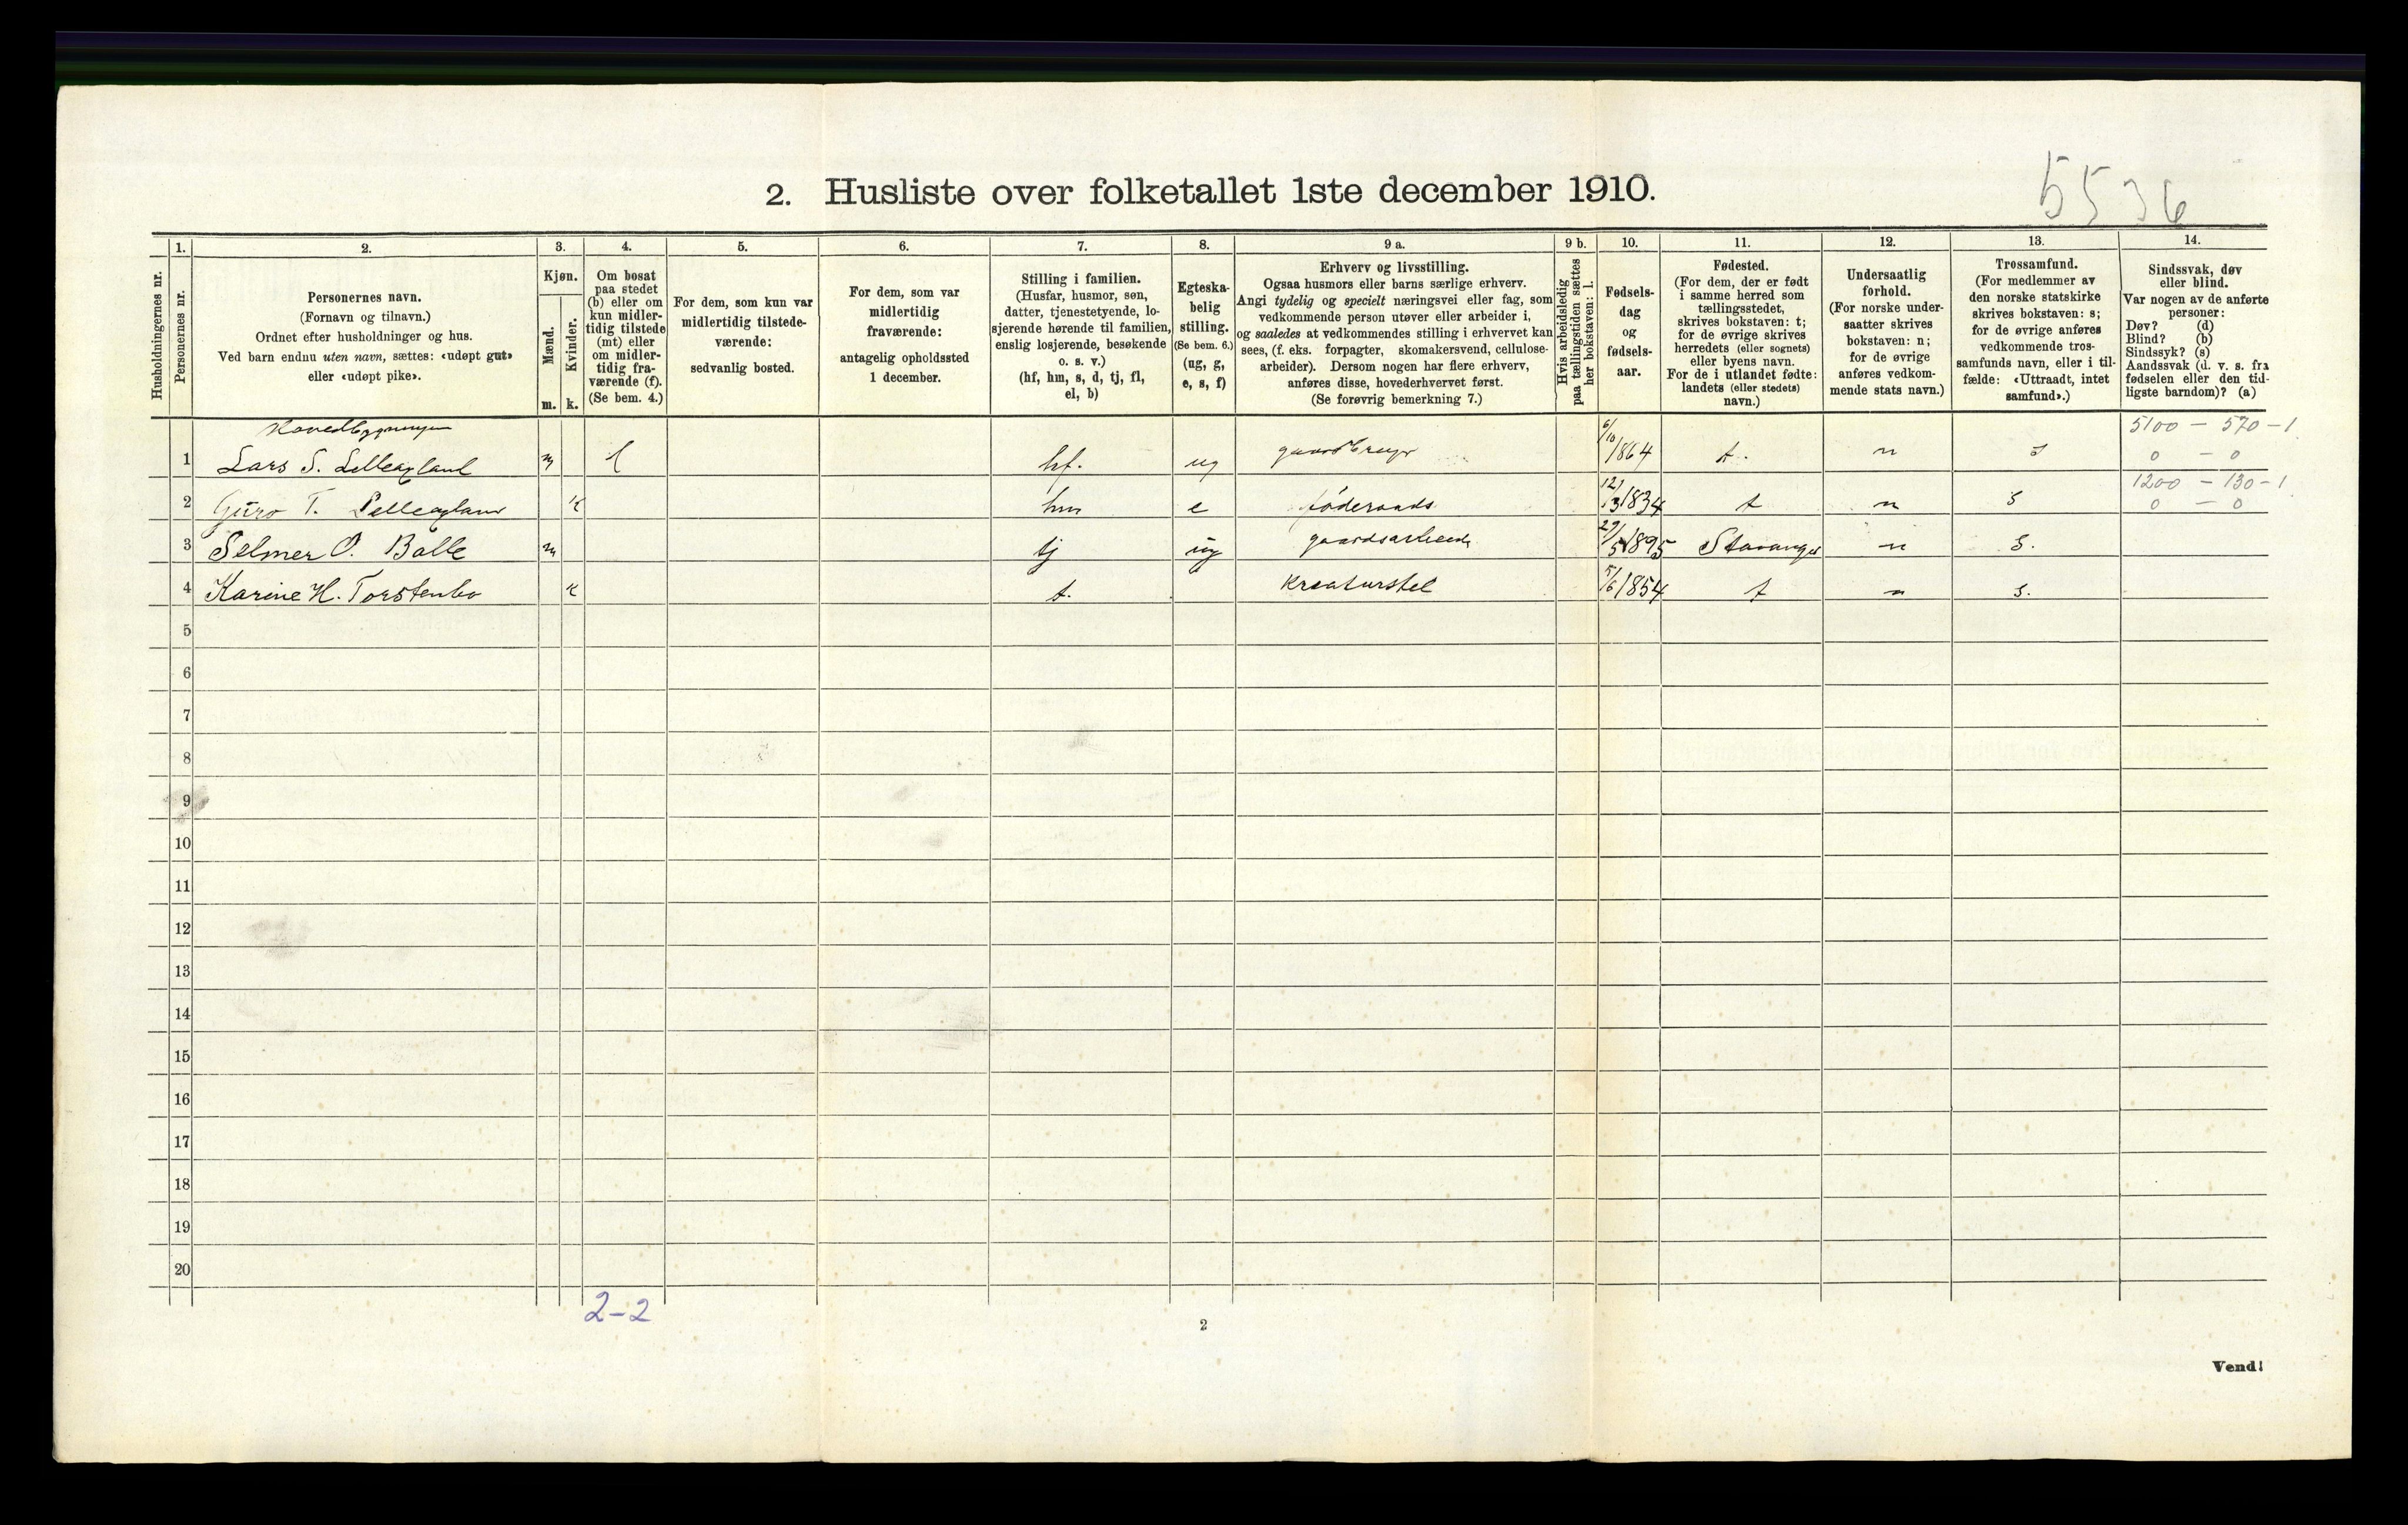 5536
2. Husliste over folketallet 1ste december 1910.
Husholdningernes nr.
1.
Personernes nr.
2.
Personernes navn.
(Fornavn og tilnavn.)
Ordnet efter husholdninger og hus.
Ved barn endnu uten navn, sættes: «udøpt gut»
eller «udøpt pike».
3.
Kjøn.
Mænd.
Kvinder.
m.
k.
4.
Om bosat
paa stedet
(b) eller om
kun midler-
tidig tilstede
(mt) eller
om midler-
tidig fra-
værende (f).
(Se bem. 4.)
5.
For dem, som kun var
midlertidig tilstede-
værende:
sedvanlig bosted.
6.
For dem, som var
midlertidig
fraværende:
antagelig opholdssted
1 december.
7.
Stilling i familien.
(Husfar, husmor, søn,
datter, tjenestetyende, lo-
sjerende hørende til familien,
enslig losjerende, besøkende
o. s. v.)
(hf, hm, s, d, tj, fl,
el, b)
8.
Egteska-
belig
stilling.
(Se bem. 6.)
(ug, g,
e, s, f)
9 a.
Erhverv og livsstilling.
Ogsaa husmors eller barns særlige erhverv.
Angi tydelig og specielt næringsvei eller fag, som
vedkommende person utøver eller arbeider i,
og saaledes at vedkommendes stilling i erhvervet kan
sees, (f. eks. forpagter, skomakersvend, cellulose-
arbeider). Dersom nogen har flere erhverv,
anføres disse, hovederhvervet først.
(Se forøvrig bemerkning 7.)
9 b.
Hvis arbeidsledig
paa tællingstiden sættes
her bokstaven: l.
10.
Fødsels-
dag
og
fødsels-
aar.
11.
Fødested.
(For dem, der er født
i samme herred som
tællingsstedet,
skrives bokstaven: t;
for de øvrige skrives
herredets (eller sognets)
eller byens navn.
For de i utlandet fødte:
landets (eller stedets)
navn.)
12.
Undersaatlig
forhold.
(For norske under-
saatter skrives
bokstaven: n;
for de øvrige
anføres vedkom-
mende stats navn.)
13.
Trossamfund.
(For medlemmer av
den norske statskirke
skrives bokstaven: s;
for de øvrige anføres
vedkommende tros-
samfunds navn, eller i til-
fælde: «Uttraadt, intet
samfund».)
14.
Sindssvak, døv
eller blind.
Var nogen av de anførte
personer:
Døv? (d)
Blind? (b)
Sindssyk? (s)
Aandssvak (d. v. s. fra
fødselen eller den tid-
ligste barndom)? (a)
Hovedbygningen
5100 - 570 - 1
1 Lars S. Lilleagland m hf. ug gaardbruger 6/10 1864 t. n s 0 - 0
1200 - 130 - 1
2 Guro T. Lilleagland k hm e føderaads 12/3 1834 t n s 0 - 0
3 Selmer O. Balle m tj ug gaardsarbeide 29/5 1895 Stavanger n s.
4 Karine H. Torstenbo k t. Kreaturstel 5/6 1854 t n s.
5
6
7
8
9
10
11
12
13
14
15
16
17
18
19
20
2-2
2
Vend!